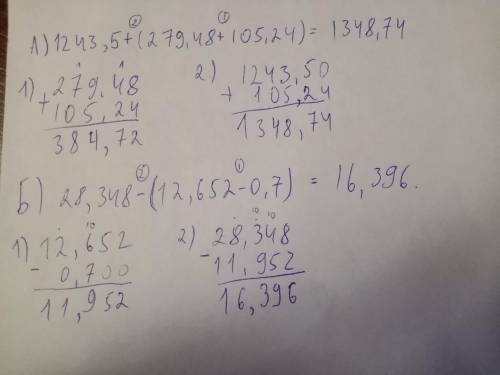 А) 1243,5+(279,48+105,24) = 1348,74
1) 279,48
+ 105,24
384,72
2) 1243,50
+ 105,24
1348,74
Б) 28,348-(12,652-0,7) = 16,396.
1) 12,652
- 0,700
11,952
2) 28,348
- 11,952
16,396